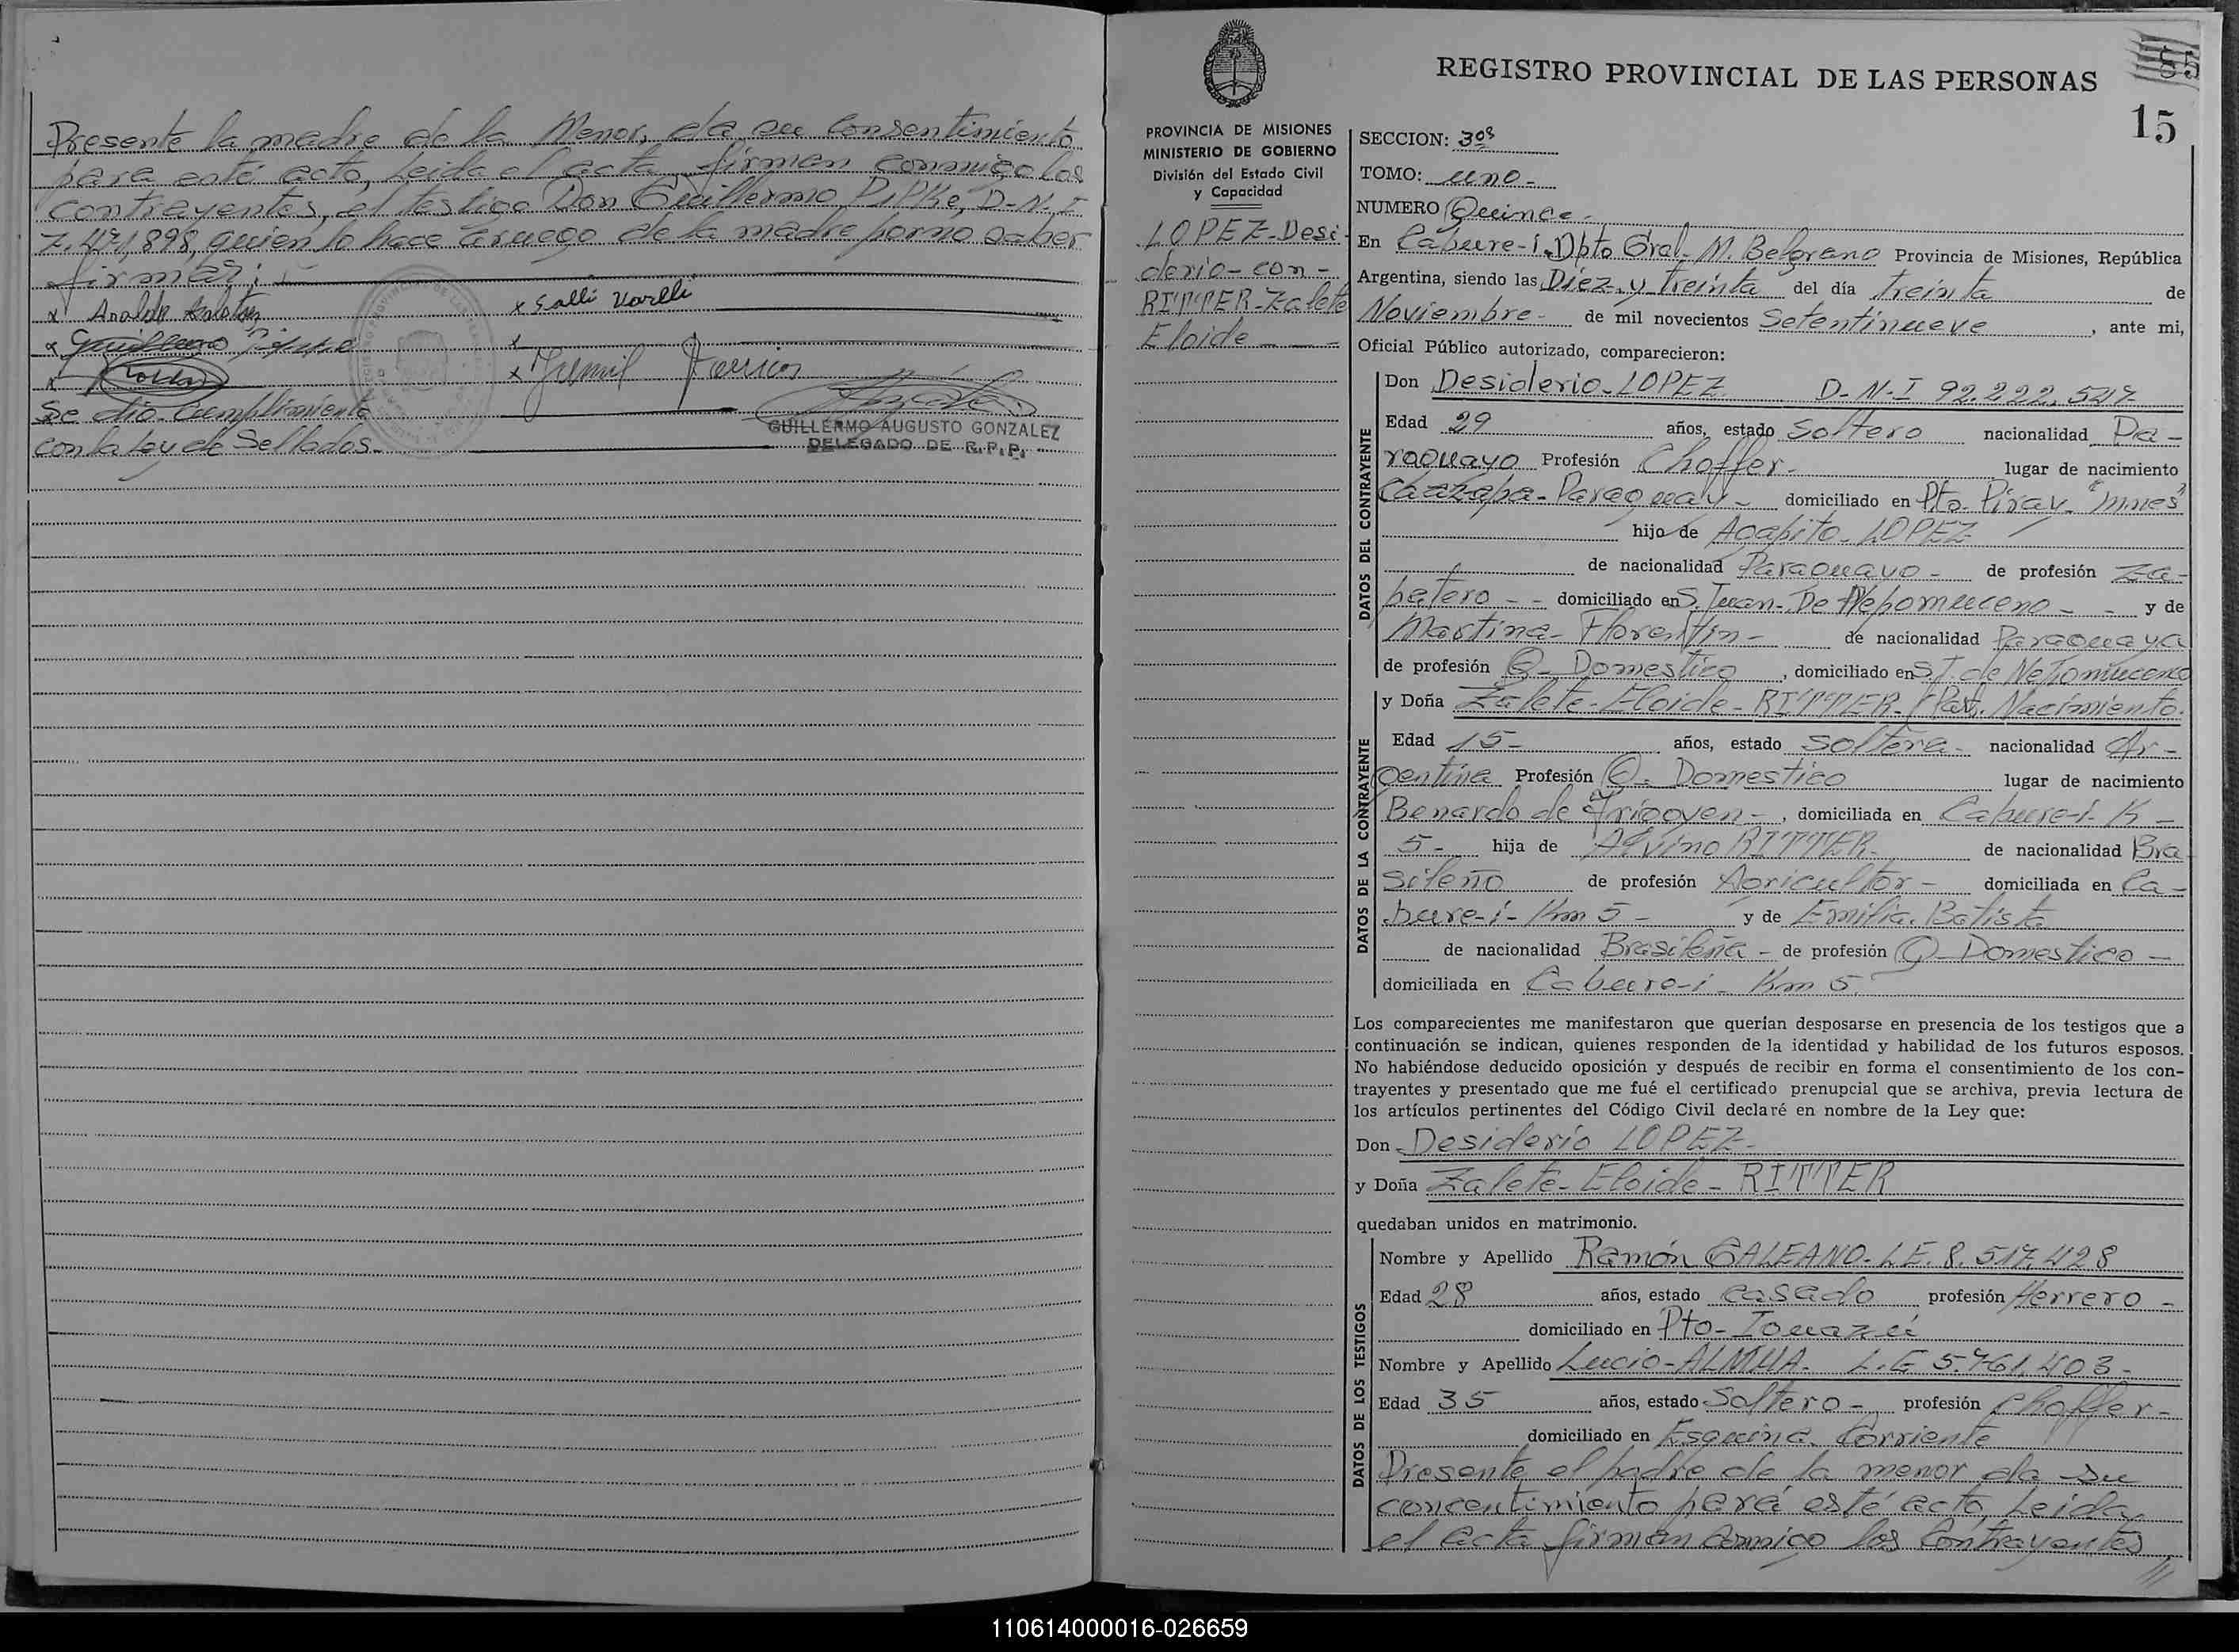 Presente la madre de la Menor, da su Consentimiento
para esté acto, Leida el acta firman conmigo los
Contrayentes, el testigo Don Guillermo PIPKe, D-N-I
7.471,898, quien lo hace a ruego de la madre por no saber
firmar;
x
x Galli
x
x
x
Se dio Cumplimiento
con la Ley de Sellados.-
GUILLERMO AUGUSTO GONZALEZ
DELEGADO DE R.P.P.
REGISTRO PROVINCIAL DE LAS PERSONAS
85
15
PROVINCIA DE MISIONES
MINISTERIO DE GOBIERNO
División del Estado Civil
y Capacidad
LOPEZ-Desi-
derio-con-
RITTER-Zalete
Eloide
SECCION: 3os
TOMO: uno-
NUMERO Quince-
En Cabure-i-Dpto Gral-M. Belgrano Provincia de Misiones, República
Argentina, siendo las Diéz y treinta del día treinta de
Noviembre- de mil novecientos Setentinueve, ante mi,
Oficial Público autorizado, comparecieron:
DATOS DEL CONTRAYENTE
Don Desiderio-LOPEZ D-N-I 92.222.547
Edad 29 años, estado Soltero nacionalidad Pa-
raguayo Profesión Choffer- lugar de nacimiento
Caazapa-Paraguay- domiciliado en Pto-Piray-
hijo de Agapito-LOPEZ
de nacionalidad Paraguayo- de profesión Za-
patero -- domiciliado en S. Juan-De Nepomuceno-- y de
Martina-Florentin- de nacionalidad Paraguaya
de profesión Q-Domestico, domiciliado en S J. de Nepomuceno
DATOS DE LA CONTRAYENTE
y Doña Zalete-Eloide-RITTER-(Part. Nacimiento.
Edad 15- años, estado Soltera- nacionalidad Ar-
gentina Profesión Q. Domestico lugar de nacimiento
Benardo de Yrigoyen-, domiciliada en Cabure-i-K-
5- hija de Alvino RITTER- de nacionalidad Bra
sileño de profesión Agricultor- domiciliada en Ca-
bure-i-Km 5- y de Emilia. Batista
de nacionalidad Brasileña- de profesión Q-Domestico-
domiciliada en Cabure-i-Km 5.
Los comparecientes me manifestaron que querían desposarse en presencia de los testigos que a
continuación se indican, quienes responden de la identidad y habilidad de los futuros esposos.
No habiéndose deducido oposición y después de recibir en forma el consentimiento de los con-
trayentes y presentado que me fué el certificado prenupcial que se archiva, previa lectura de
los artículos pertinentes del Código Civil declaré en nombre de la Ley que:
Don Desiderio LOPEZ-
y Doña Zalete-Eloide-RITTER
quedaban unidos en matrimonio.
DATOS DE LOS TESTIGOS
Nombre y Apellido Ramón GALEANO-L.E. 8.517.428
Edad 28 años, estado casado, profesión Herrero-
domiciliado en Pto-Iguazú
Nombre y Apellido Lucio- L.E 5.761,403-
Edad 35 años, estado Soltero- profesión Choffer-
domiciliado en Esquina. Corriente
Presente el padre de la menor da su
concentimiento pará esté acto, Leida
el acta firman conmigo los Contrayentes
110614000016-026659